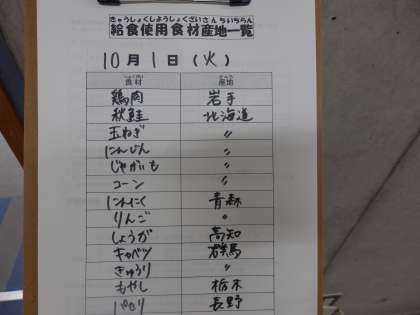 きゅうしょくしようしょくざいさんちいちらん
給食使用食材産地一覧
10月1日(火)
食材 産地
鶏肉 岩手
秋鮭 北海道
玉ねぎ 〃
にんじん 〃
じゃがいも 〃
コーン 〃
にんにく 青森
りんご 〃
しょうが 高知
キャベツ 群馬
きゅうり 〃
もやし 栃木
パセリ 長野